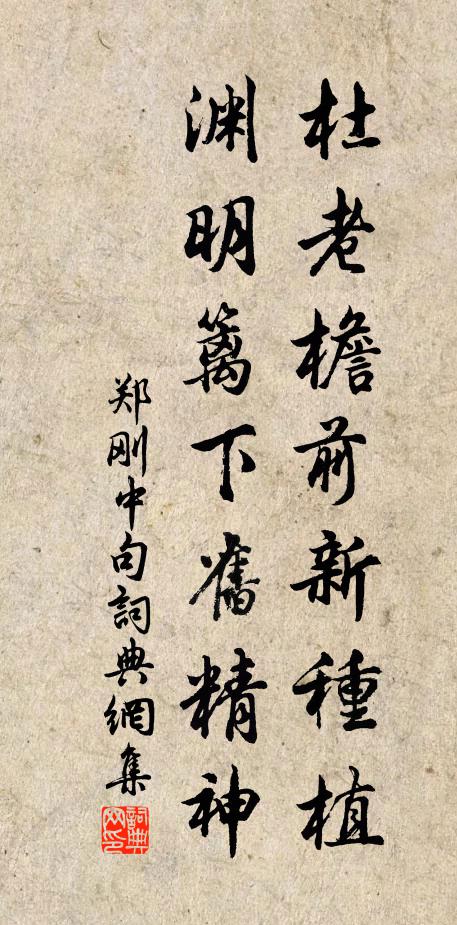 杜老檐前新種植
渊明篱下舊精神
郑刚中句詞典網集
詞典网印